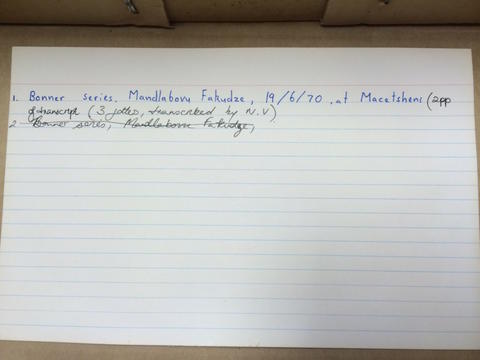 1. Bonner series. Mandlabovu Fakudze, 19/6/70. at Macetsheni (2pp
of transcript (3 jottes, transcribed by N.V)
2 Bonner series, Mandlabovu Fakudze,